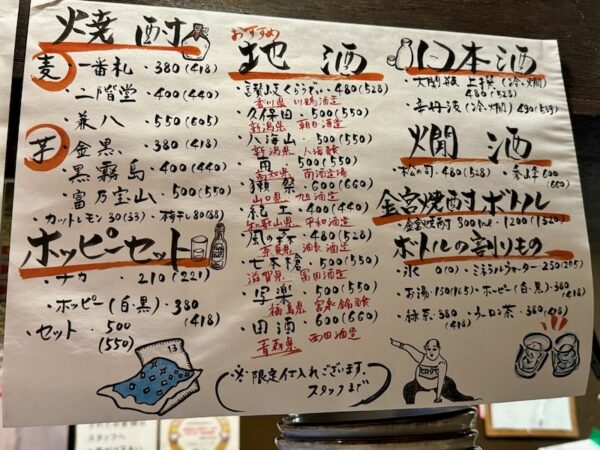 焼酎
麦
一番札・380(418)
二階堂・400(440)
兼八・550(605)
芋
金黒・380(418)
黒霧島・400(440)
富乃宝山・500(550)
カットレモン30(33)・梅干し80(88)
ホッピーセット
・ナカ・210(221)
・ホッピー(白・黒)・380
(418)
・セット・500
(550)
おすすめ
地酒
・480(528)
香川県 川鶴酒造
久保田・500(550)
新潟県 朝日酒造
八海山・500(550)
新潟県 八海醸
南・500(550)
高知県 南酒造場
獺祭・600(660)
山口県 旭酒造
紀土・400(440)
和歌山県 平和酒造
風の森・480(528)
奈良県 油長酒造
七本槍・500(550)
滋賀県 冨田酒造
写楽・500(550)
福島県 宮泉銘醸
・田酒・600(660)
青森県 西田酒造
※限定仕入れございます。
スタッフまで
日本酒
上撰(冷・燗)
480(528)
・辛丹波(冷・燗)490(539)
燗酒
・松の司・480(528)
600
(660)
金宮焼酎ボトル
・金宮焼酎300ml・1200(1320)
ボトルの割りもの
・氷 0(0)・ミネラルウォーター250(265)
・お湯・150(165)・ホッピー(白・黒)・380
(418)
・緑茶・380
(418)
・ウーロン茶・380
(418)